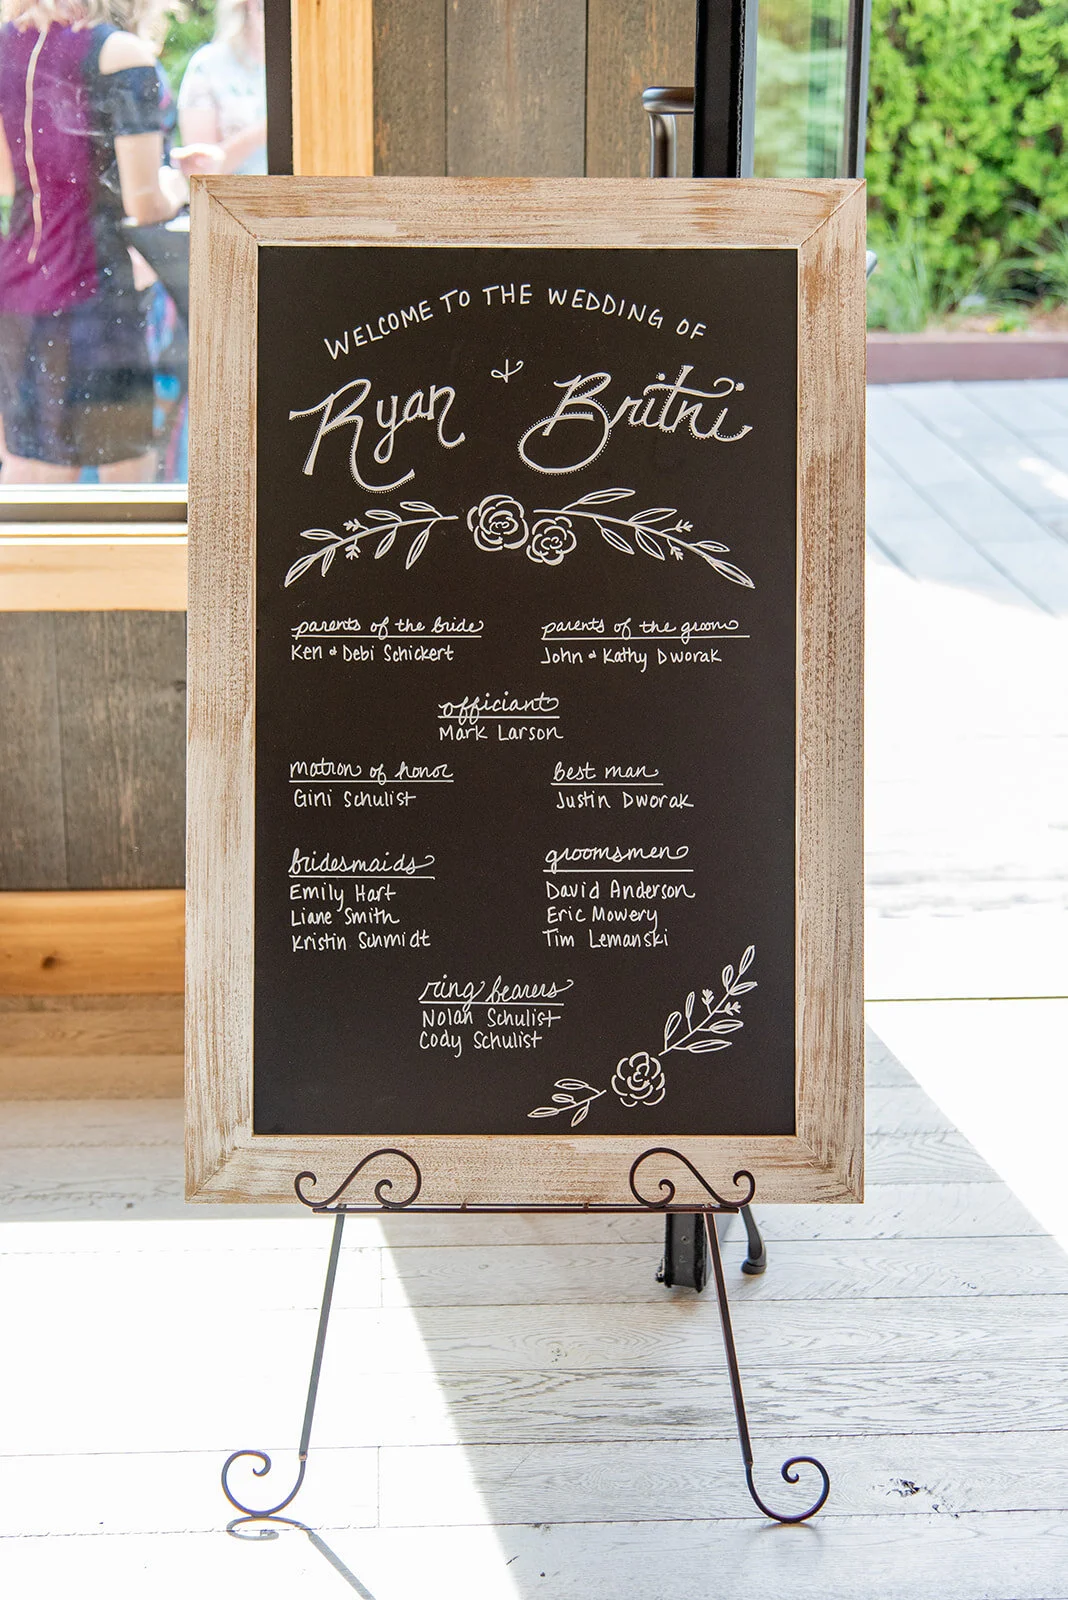 WELCOME TO THE WEDDING OF
Ryan & Britni
parents of the bride
Ken & Debi Schickert
parents of the groom
John & Kathy Dworak
officiant
Mark Larson
matron of honor
Gini Schulist
best man
Justin Dworak
bridesmaids
Emily Hart
Liane Smith
Kristin Schmidt
groomsmen
David Anderson
Eric Mowery
Tim Lemanski
ring bearers
Nolan Schulist
Cody Schulist